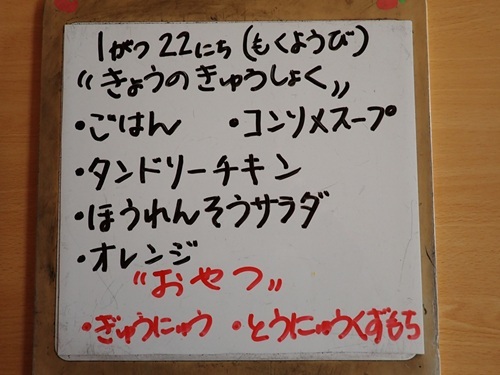 1がつ22にち(もくようび)
“きょうのきゅうしょく”
・ごはん ・コンソメスープ
・タンドリーチキン
・ほうれんそうサラダ
・オレンジ
“おやつ”
・ぎゅうにゅう ・とうにゅうくずもち